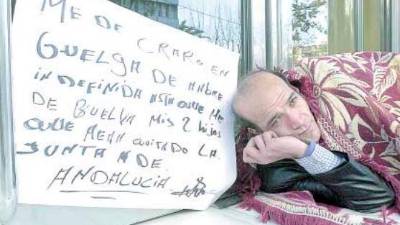 ME DE CRARO EN
GUELGA DE ANBRE
INDEFINIDA ASTA QUE ME
DE BUELVA MIS 2 hijas
QUE MEAN QUITADO LA
JUNTA DE
ANDALUCIA